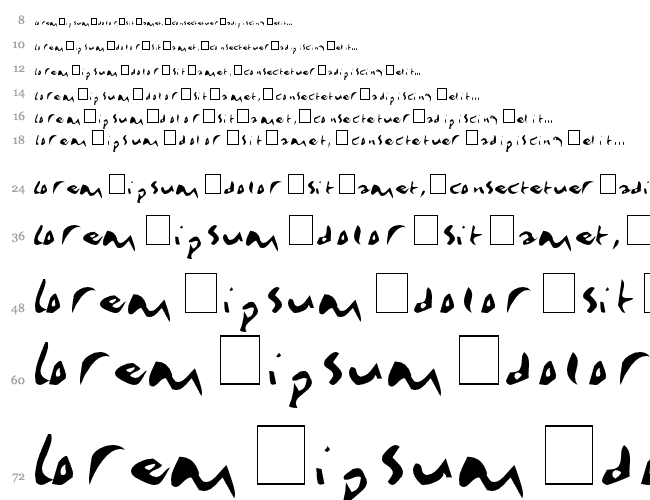 8 lorem□ipsum□dolor□sit□amet,□consectetuer□adipiscing□elit...
10 lorem□ipsum□dolor□sit□amet,□consectetuer□adipiscing□elit...
12 lorem□ipsum□dolor□sit□amet,□consectetuer□adipiscing□elit...
14 lorem□ipsum□dolor□sit□amet,□consectetuer□adipiscing□elit...
16 lorem□ipsum□dolor□sit□amet,□consectetuer□adipiscing□elit...
18 lorem□ipsum□dolor□sit□amet,□consectetuer□adipiscing□elit...
24 lorem□ipsum□dolor□sit□amet,□consectetuer□adi
36 lorem□ipsum□dolor□sit□amet,□
48 lorem□ipsum□dolor□sit□
60 lorem□ipsum□dolor
72 lorem□ipsum□do